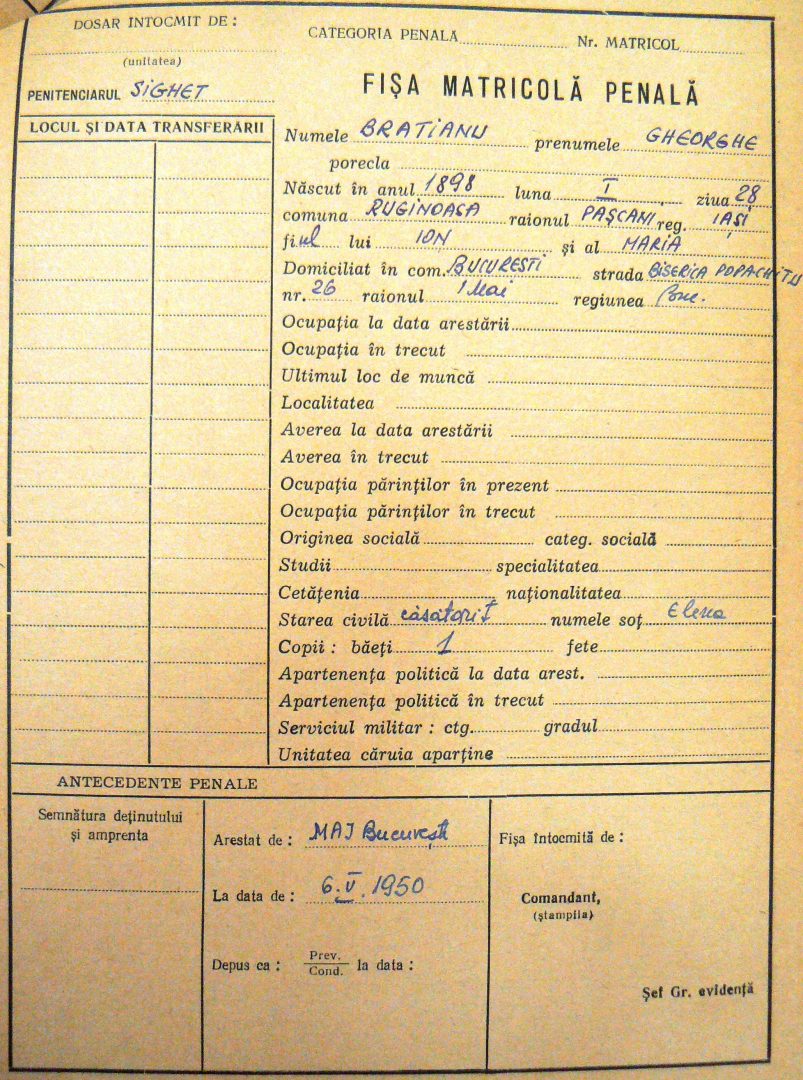 DOSAR INTOCMIT DE :
(unitatea)
PENITENCIARUL SIGHET
LOCUL ȘI DATA TRANSFERĂRII
CATEGORIA PENALĂ Nr. MATRICOL
FIȘA MATRICOLĂ PENALĂ
Numele BRATIANU prenumele GHEORGHE
porecla
Născut în anul 1898 luna I ziua 28
comuna RUGINOASA raionul PAȘCANI reg. IAȘI
fiul lui ION și al MARIA
Domiciliat în com. BUCUREȘTI strada BISERICA POPA CHIȚU
nr. 26 raionul 1 Mai regiunea
Ocupația la data arestării
Ocupația în trecut
Ultimul loc de muncă
Localitatea
Averea la data arestării
Averea în trecut
Ocupația părinților în prezent
Ocupația părinților în trecut
Originea socială categ. socială
Studii specialitatea
Cetățenia naționalitatea
Starea civilă căsătorit numele soț Elena
Copii : băeți 1 fete
Apartenența politică la data arest.
Apartenența politică în trecut
Serviciul militar : ctg. gradul
Unitatea căruia aparține
ANTECEDENTE PENALE
Semnătura deținutului
și amprenta
Arestat de : MAI București
La data de : 6.V.1950
Depus ca : Prev. / Cond. la data :
Fișa întocmită de :
Comandant,
(ștampila)
Șef Gr. evidență